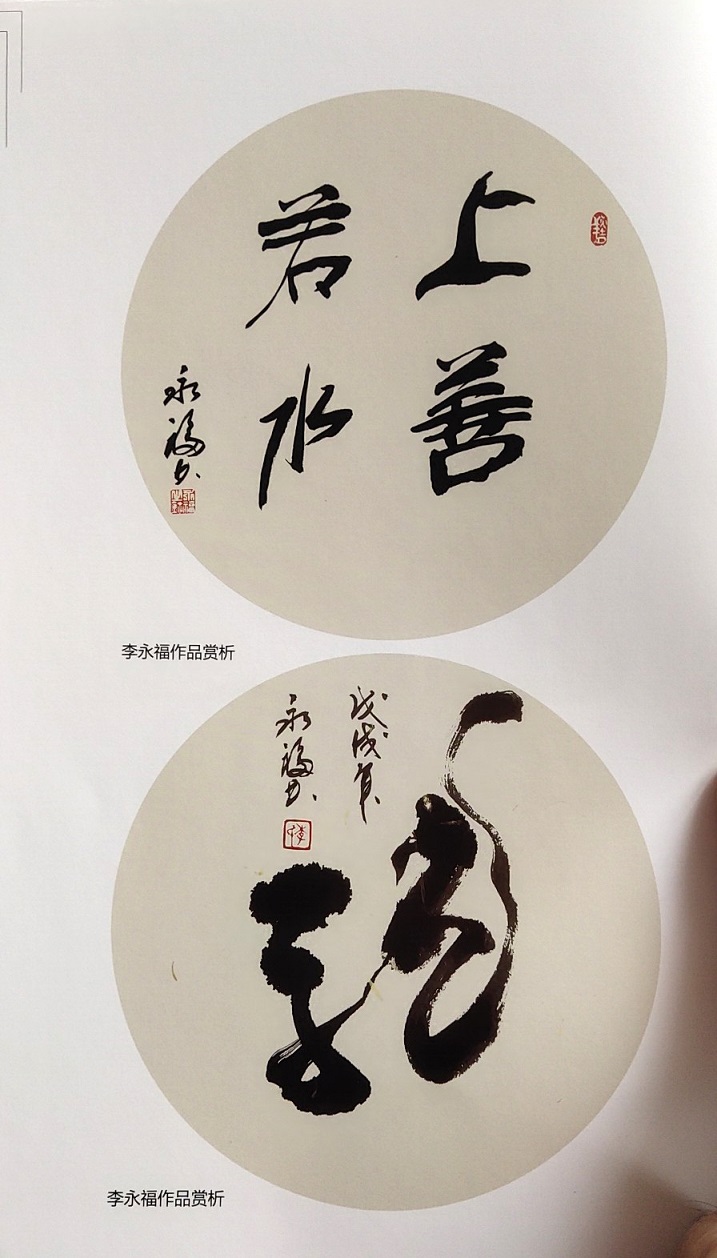 上善
若水
永福书
李永福作品赏析
戊戌年
永福书
李永福作品赏析